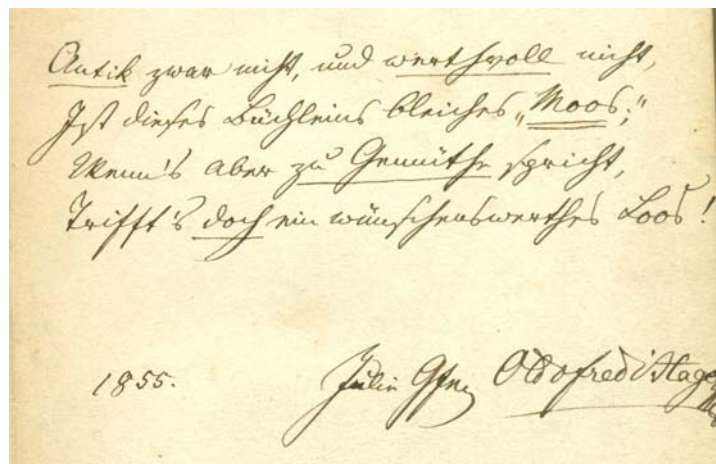 Antik zwar nicht, und werthvoll nicht,
Ist dieses Büchleins bleiches „Moos;“
Wenn's aber zu Gemüthe spricht,
Trifft's doch ein wünschenswerthes Loos!
1855. Julie Oldofredi Hage